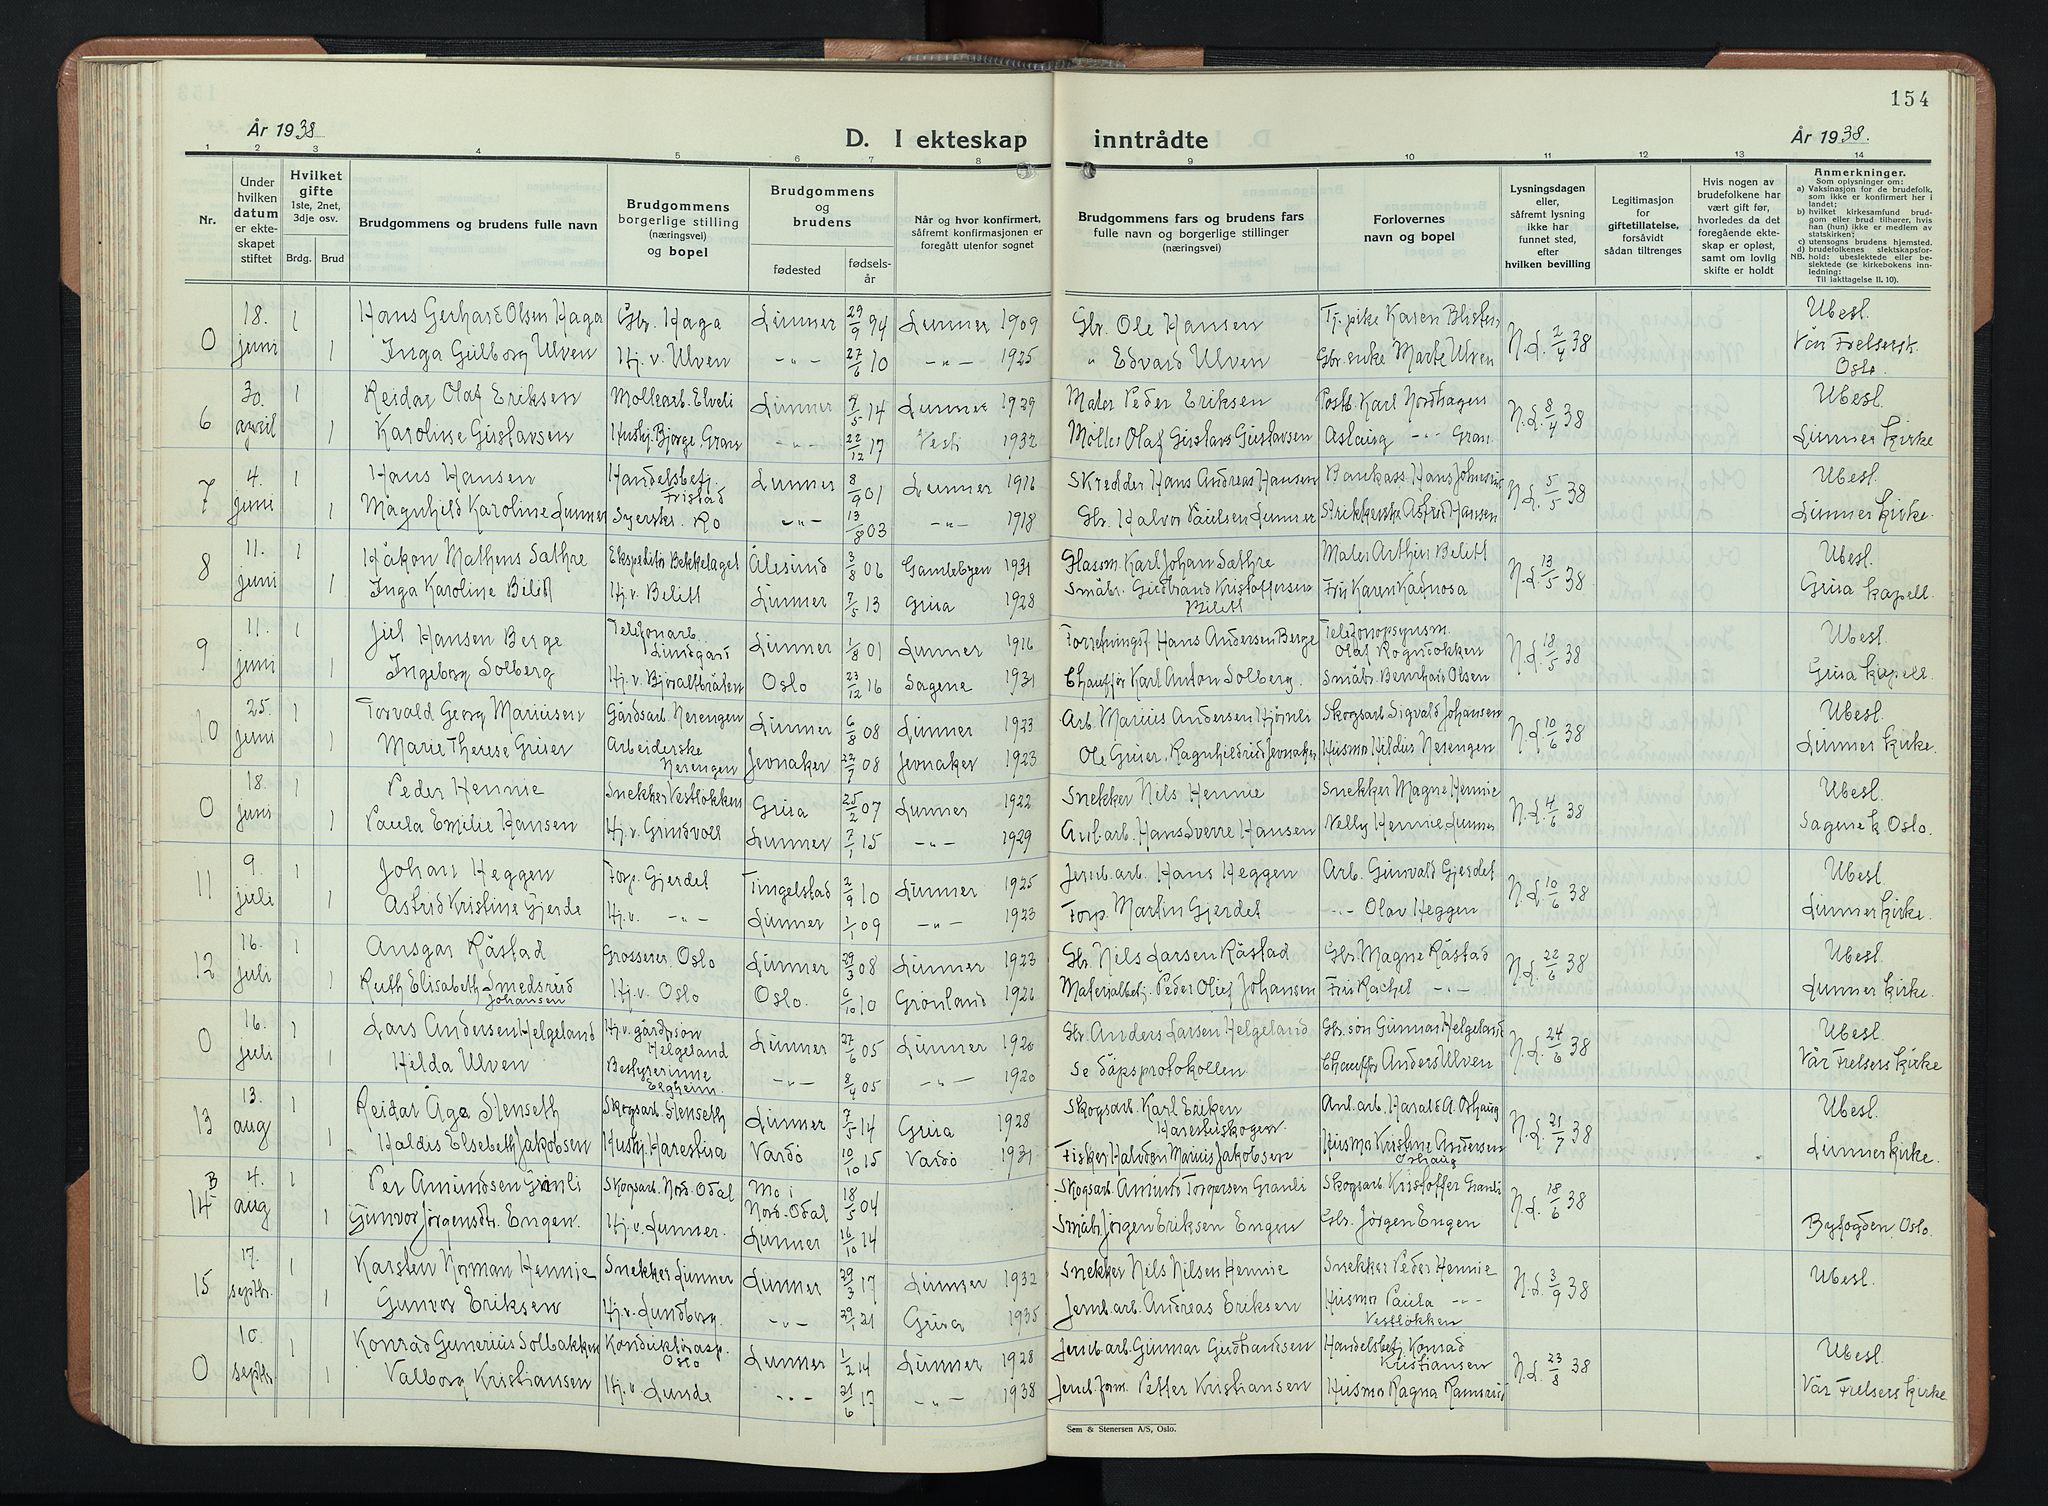 154
År 1938
D. I ekteskap inntrådte
År 1938.
1 2 3 4 5 6 7 8 9 10 11 12 13 14
Nr.
Under hvilken datum er ekteskapet stiftet
Hvilket gifte 1ste, 2net, 3dje osv.
Brdg. Brud
Brudgommens og brudens fulle navn
Brudgommens borgerlige stilling (næringsvei) og bopel
Brudgommens og brudens
fødested fødselsår
Når og hvor konfirmert, såfremt konfirmasjonen er foregått utenfor sognet
Brudgommens fars og brudens fars fulle navn og borgerlige stillinger (næringsvei)
Forlovernes navn og bopel
Lysningsdagen eller, såfremt lysning ikke har funnet sted, efter hvilken bevilling
Legitimasjon for giftetillatelse, forsåvidt sådan tiltrenges
Hvis nogen av brudefolkene har vært gift før, hvorledes da det foregående ekteskap er opløst, samt om lovlig skifte er holdt
Anmerkninger.
Som oplysninger om:
a) Vaksinasjon for de brudefolk, som ikke er konfirmert her i landet;
b) hvilket kirkesamfund brudgom eller brud tilhører, hvis han (hun) ikke er medlem av statskirken;
c) utensogns brudens hjemsted.
d) brudefolkenes slektskapsforhold: ubeslektede eller beslektede (se kirkebokens innledning:
NB. Til iakttagelse II. 10).
0 18. juni 1 Hans Gerhard Olsen Haga Gbr. Haga Lunner 29/9 94 Lunner 1909 Gbr. Ole Hansen Tj.pike Karen N.d. 2/4 38 Ubesl.
1 Inga Gulborg Ulven Hj. v. Ulven -"- 27/6 10 -"- 1925 " Edvard Ulven Gbr.enke Marte Ulven Vår Frelsersk. Oslo.
6 30. april 1 Reidar Olaf Eriksen Møllearb. Elveli Lunner 9/5 14 Lunner 1929 Maler Peder Eriksen Postb. Karl Nordhagen N.d. 8/4 38 Ubesl.
1 Karoline Gustavsen Hushj. Bjørge, Gran -"- 22/12 17 Vesti 1932 Møller Olaf Gustavs Gustavsen Aslaug -"- Gran Lunner kirke
7 4. juni 1 Hans Hansen Handelsbetj. Fristad Lunner 8/9 01 Lunner 1916 Skredder Hans Andreas Hansen Bankass. Hans Johnsrud N.d. 5/5 38 Ubesl.
1 Magnhild Karoline Lunner Syerske. Ro -"- 13/8 03 -"- 1918 Gbr. Halvor Paulsen Lunner Strikkerske Astrid Hansen Lunner kirke.
8 11. juni 1 Håkon Mathens Sathre Ekspeditør Bekkelaget Ålesund 3/8 06 Gamlebyen 1931 Glassm. Karl Johan Sathre Maler Arthur Bilitt N.d. 13/5 38 Ubesl.
1 Inga Karoline Bilitt Hj. v. Bilitt Lunner 7/5 13 Grua 1928 Småbr. Gudbrand Kristoffersen Bilitt Fru Karen Kafnosa Grua kapell.
9 11. juni 1 Jul Hansen Berge Telefonarb. Lundgård Lunner 1/8 01 Lunner 1916 Forretningsf. Hans Andersen Berge Telefonopsynsm. Olaf Rognstokken N.d. 18/5 38 Ubesl.
1 Ingeborg Solberg Hj. v. Bjøraltbråten Oslo 23/12 16 Sagene 1931 Chauffør Karl Anton Solberg. Småbr. Bernhard Olsen Grua kapell.
10 25. juni 1 Torvald Georg Mariusen Gårdsarb. Nerengen Lunner 6/8 08 Lunner 1923 Arb. Marius Andersen Hjørnli Skogsarb. Sigvald Johansen N.d. 10/6 38 Ubesl.
1 Marie Therese Gruer Arbeiderske Nerengen Jevnaker 22/7 08 Jevnaker 1923 Ole Gruer, Ragnhildrud Jevnaker Husmor Hildur Nerengen Lunner kirke.
0 18. juni 1 Peder Hennie Snekker Vestlokken Grua 25/2 07 Lunner 1922 Snekker Nils Hennie Snekker Magne Hennie N.d. 4/6 38 Ubesl.
1 Paula Emilie Hansen Hj. v. Grindvoll Lunner 7/1 15 -"- 1929 Anl.arb. Hans Sverre Hansen Nelly Hennie, Lunner Sagene k. Oslo.
11 9. juli 1 Johan Heggen Forp. Gjerdet Tingelstad 2/9 10 Lunner 1925 Jernb.arb. Hans Heggen Arb. Gunvald Gjerdet N.d. 10/6 38 Ubesl.
1 Astrid Kristine Gjerde Hj. v. -"- Lunner 1/1 09 -"- 1923 Forp. Martin Gjerdet -"- Olav Heggen Lunner kirke.
12 16. juli 1 Ansgar Råstad Grosserer. Oslo Lunner 29/3 08 Lunner 1923 Gbr. Nils Larsen Råstad Gbr. Magne Råstad N.d. 22/6 38 Ubesl.
1 Ruth Elisabeth Smedsrud Johansen Hj. v. Oslo Oslo. 6/10 10 Grønland 1926 Materialbetj. Peder Oluf Johansen Fru Rachel -"- Lunner kirke.
0 16. juli 1 Lars Andersen Helgeland Hj.v. gårdssøn Helgeland Lunner 27/6 05 Lunner 1920 Gbr. Anders Larsen Helgeland Gbr.søn Gunnar Helgeland N.d. 24/6 38 Ubesl.
1 Hilda Ulven Bestyrerinne Elgheim -"- 8/4 05 -"- 1920 Se dåpsprotokollen Chauffør Anders Ulven Vår Frelsers kirke
13 13. aug 1 Reidar Åge Stenseth Skogsarb. Stenseth Lunner 7/5 14 Grua 1928 Skogsarb. Karl Eriksen Harestuskogen Anl.arb. Harald A. Orhaug N.d. 21/7 38 Ubesl.
1 Haldis Elsebeth Jakobsen Hushj. Harestua Vardö 10/10 15 Vardö 1931 Fisker Halvdan Marius Jakobsen Husmor Kristine Andersen Orhaug Lunner kirke.
B 14 4. aug 1 Per Amundsen Granli Skogsarb. Nord-Odal Mo i Nord-Odal 18/5 04 Skogsarb. Amund Torgersen Granli Skogsarb. Kristoffer Granli N.d. 18/6 38
1 Gunvor Jørgensdtr. Engen. Hj. v. Lunner. Lunner 16/10 14 Småbr. Jørgen Eriksen Engen Gbr. Jørgen Engen Byfogden, Oslo.
15 17. septbr. 1 Karsten Norman Hennie Snekker Lunner Lunner 29/3 17 Lunner 1932 Snekker Nils Nilsen Hennie Snekker Peder Hennie N.d. 3/9 38 Ubesl.
1 Gunvor Eriksen Hj.v. Lundborg. -"- 29/1 21 Grua 1935 Jernb.arb. Andreas Eriksen Husmor Paula -"- Vestlokken
0 10. septbr 1 Konrad Gunerius Solbakken Konduktørasp. Oslo Lunner 1/2 14 Lunner 1928 Jernb.arb. Gunnar Gudbrandsen Handelsbetj. Konrad Kristiansen N.d. 23/8 38 Ubesl.
1 Valborg Kristiansen Hj. v. Lunde -"- 21/6 17 -"- 1938 Jernb.form. Petter Kristiansen Husmor Ragna Ramsrud Vår Frelsers kirke
Sem & Stenersen A/S, Oslo.